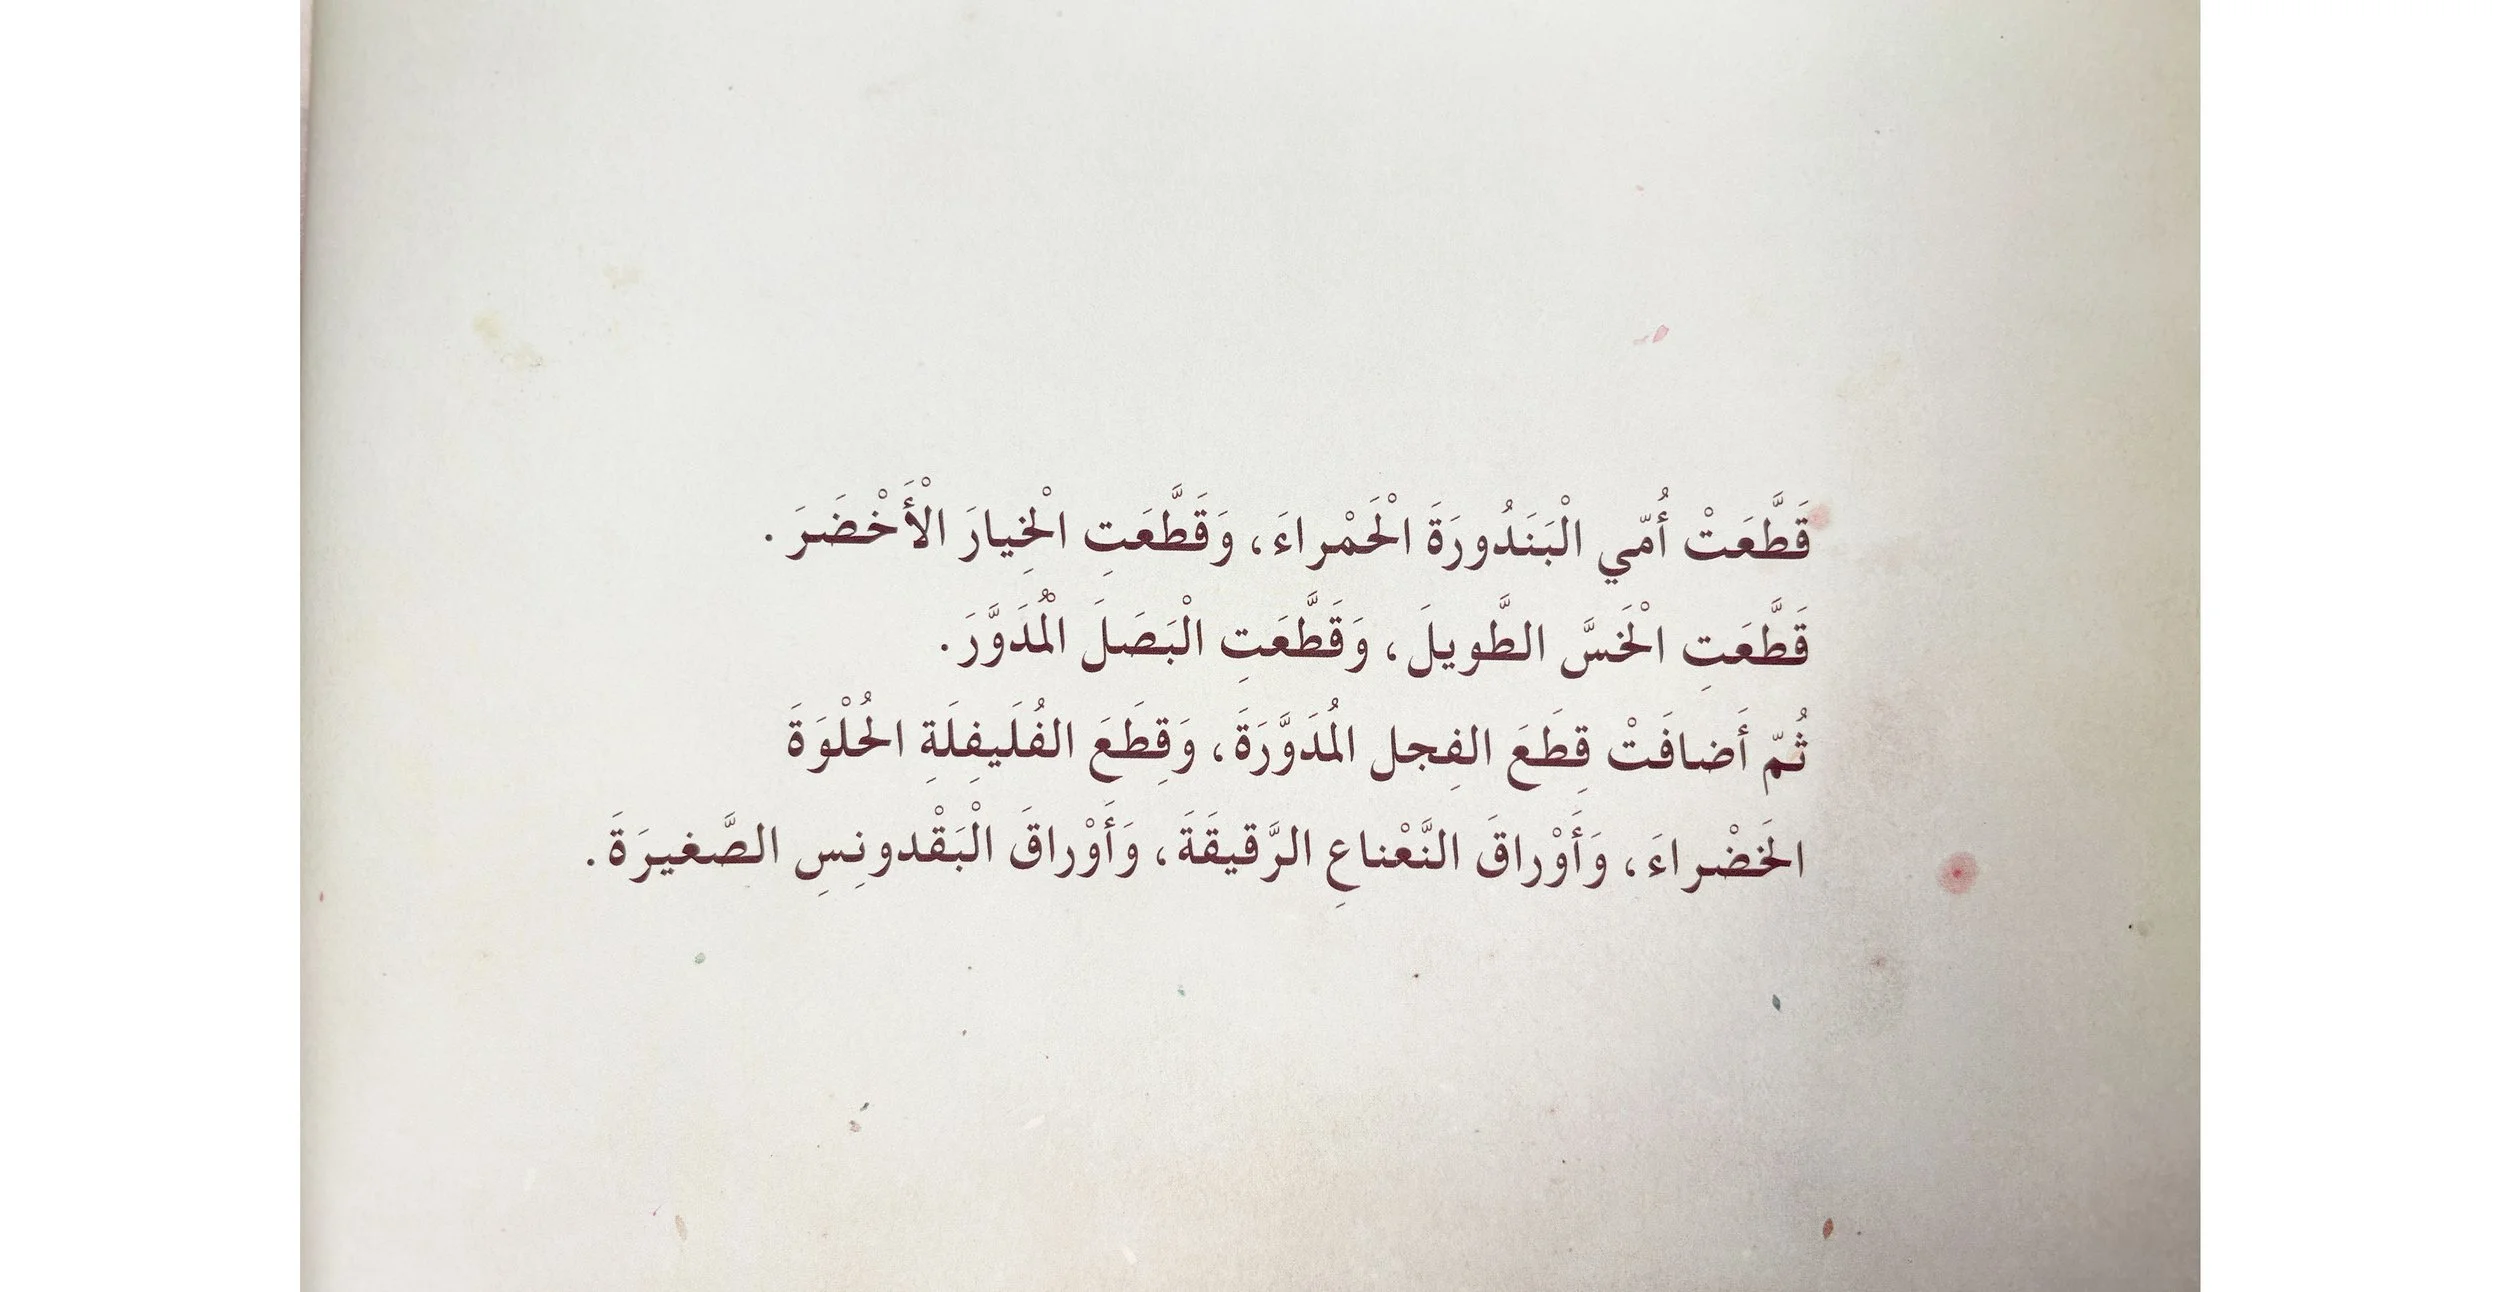 قَطَّعَتْ أُمّي الْبَنَدُورَةَ الْحَمْراءَ، وَقَطَّعَتِ الْخِيارَ الْأَخْضَرَ.
قَطَّعَتِ الْخَسَّ الطَّويلَ، وَقَطَّعَتِ الْبَصَلَ الْمُدَوَّرَ.
ثُمّ أَضافَتْ قِطَعَ الفِجل المُدَوَّرَةَ، وَقِطَعَ الفُلَيفِلَةِ الحُلْوَةَ
الخَضْراءَ، وَأَوْراقَ النَّعْناعِ الرَّقيقَةَ، وَأَوْراقَ الْبَقْدونِسِ الصَّغيرَةَ.